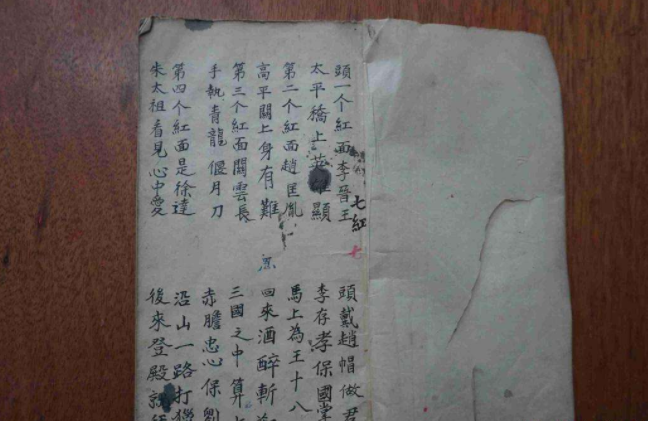 七紅
七
頭一个紅面李晉王
頭戴趙帽做君
太平橋上英雄顯
李存孝保國掌
第二个紅面趙匡胤
馬上為王十八
高平關上身有難
回來酒醉斬
第三个紅面關雲長
三國之中算
手執青龍偃月刀
赤膽忠心保劉
第四个紅面是徐達
沿山一路打獵
朱太祖看見心中愛
後來登殿